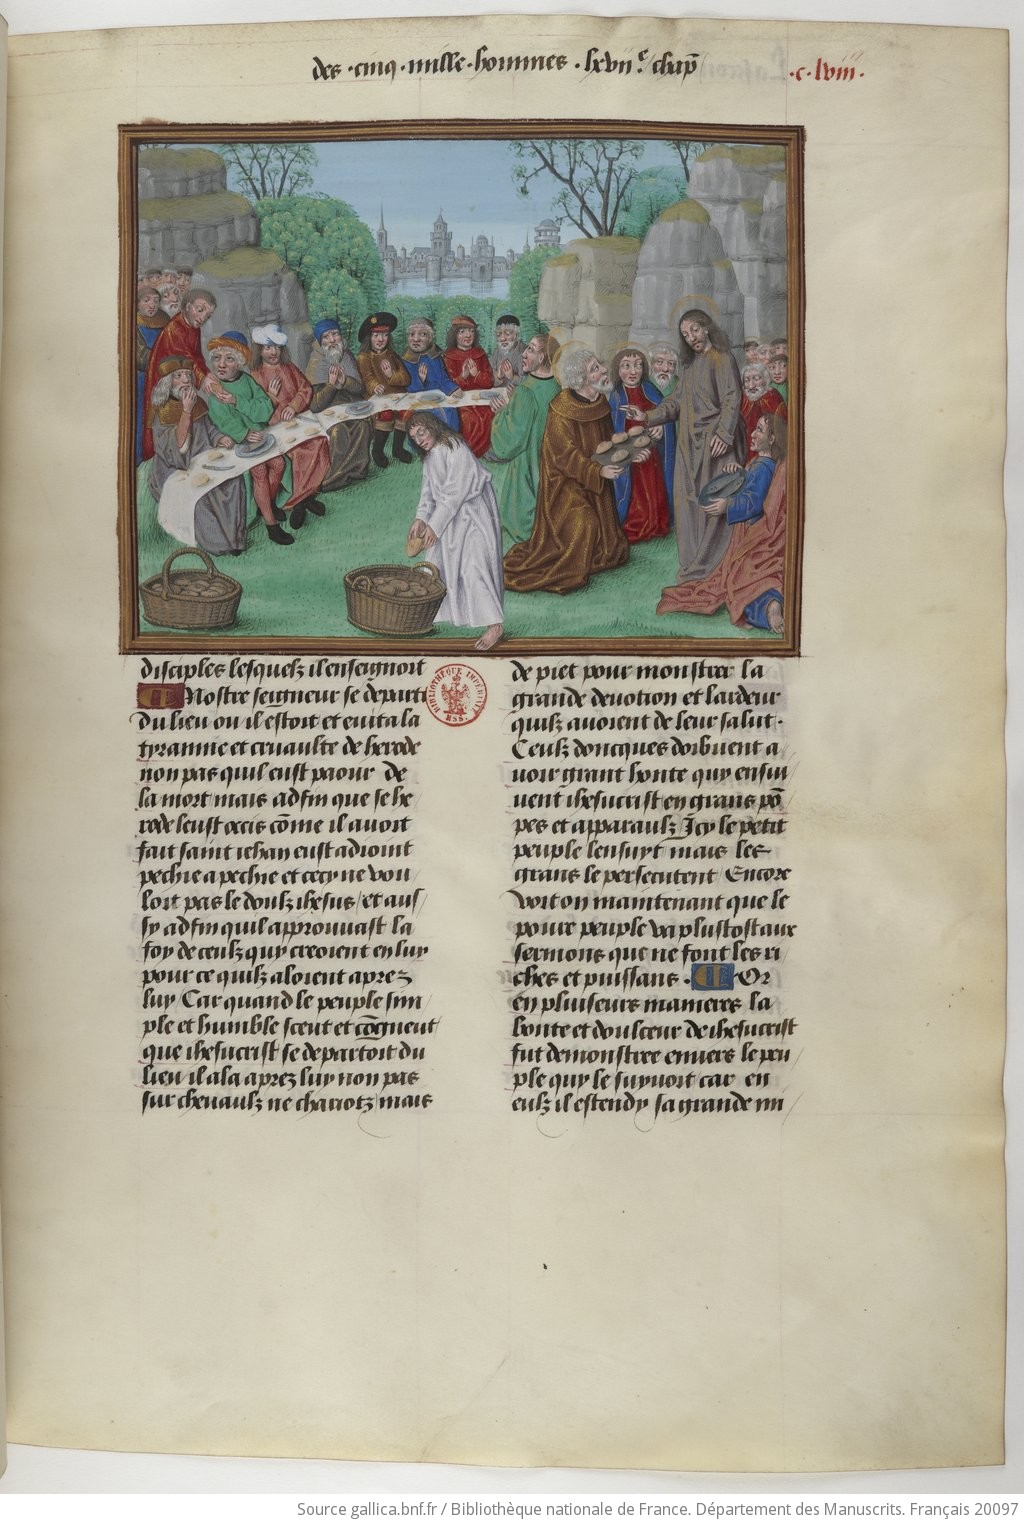 des · cinq · mille · hommes · lxvii.e chap̄
· c · lviii ·
disciples lesquelz il enseignoit
Nostre seigneur se departi
du lieu ou il estoit et evita la
tyrannie et cruaulte de herode
non pas quil eust paour de
la mort mais ad fin que se he
rode leust occis cōme il avoit
fait saint iehan eust adioint
pechie a pechie et cecy ne vou
loit pas le doulz ihesus / et aus /
sy ad fin quil approuvast la
foy de ceulz quy creoient en luy
pour ce quilz aloient aprez
luy Car quand le peuple sim /
ple et humble sceut et cōgneut
que ihesucrist se departoit du
lieu il ala aprez luy non pas
sur chevaulz ne chariotz mais
BIBLIOTHÈQUE IMPÉRIALE MSS.
de piet pour monstrer la
grande devotion et lardeur
quilz avoient de leur salut ·
Ceulz doncques doibvent a
voir grant honte quy ensui /
vent ihesucrist en grans pō
pes et apparaulz Icy le petit
peuple lensuyt mais les
grans le persecutent Encore
voit on maintenant que le
povre peuple va plustost aux
sermons que ne font les ri
ches et puissans · Or
en pluiseurs manieres la
bonte et doulceur de ihesucrist
fut demonstree envers le peu
ple quy le suyvoit car en
eulz il estendy sa grande mi /
Source gallica.bnf.fr / Bibliothèque nationale de France. Département des Manuscrits. Français 20097